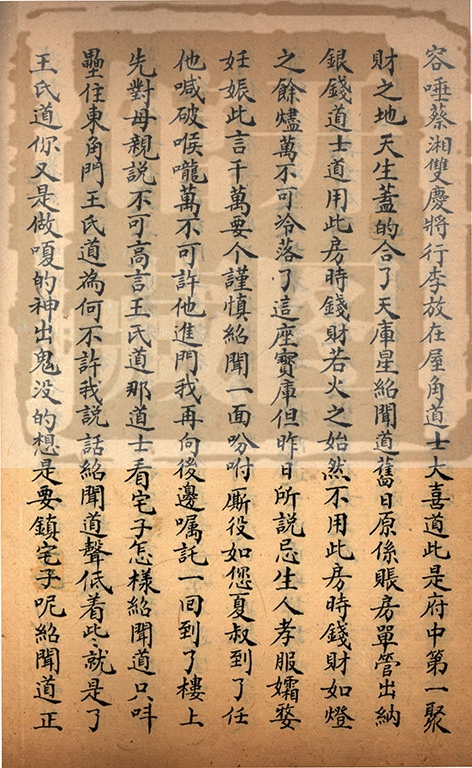 容唾蔡湘雙慶將行李放在屋角道士大喜道此是府中第一聚
財之地天生蓋的合了天庫星紹聞道舊日原係賬房單管出納
銀錢道士道用此房時錢財若火之始然不用此房時錢財如燈
之餘燼萬不可冷落了這座寶庫但昨日所說忌生人孝服孀婺
妊娠此言千萬要个謹慎紹聞一面吩咐廝役如您夏叔到了任
他喊破喉嚨萬不可許他進門我再向後邊囑託一回到了樓上
先對母親說不可高言王氏道那道士看宅子怎樣紹聞道只呌
壘住東角門王氏道為何不許我說話紹聞道聲低着些就是了
王氏道你又是做嗄的神出鬼没的想是要鎮宅子呢紹聞道正